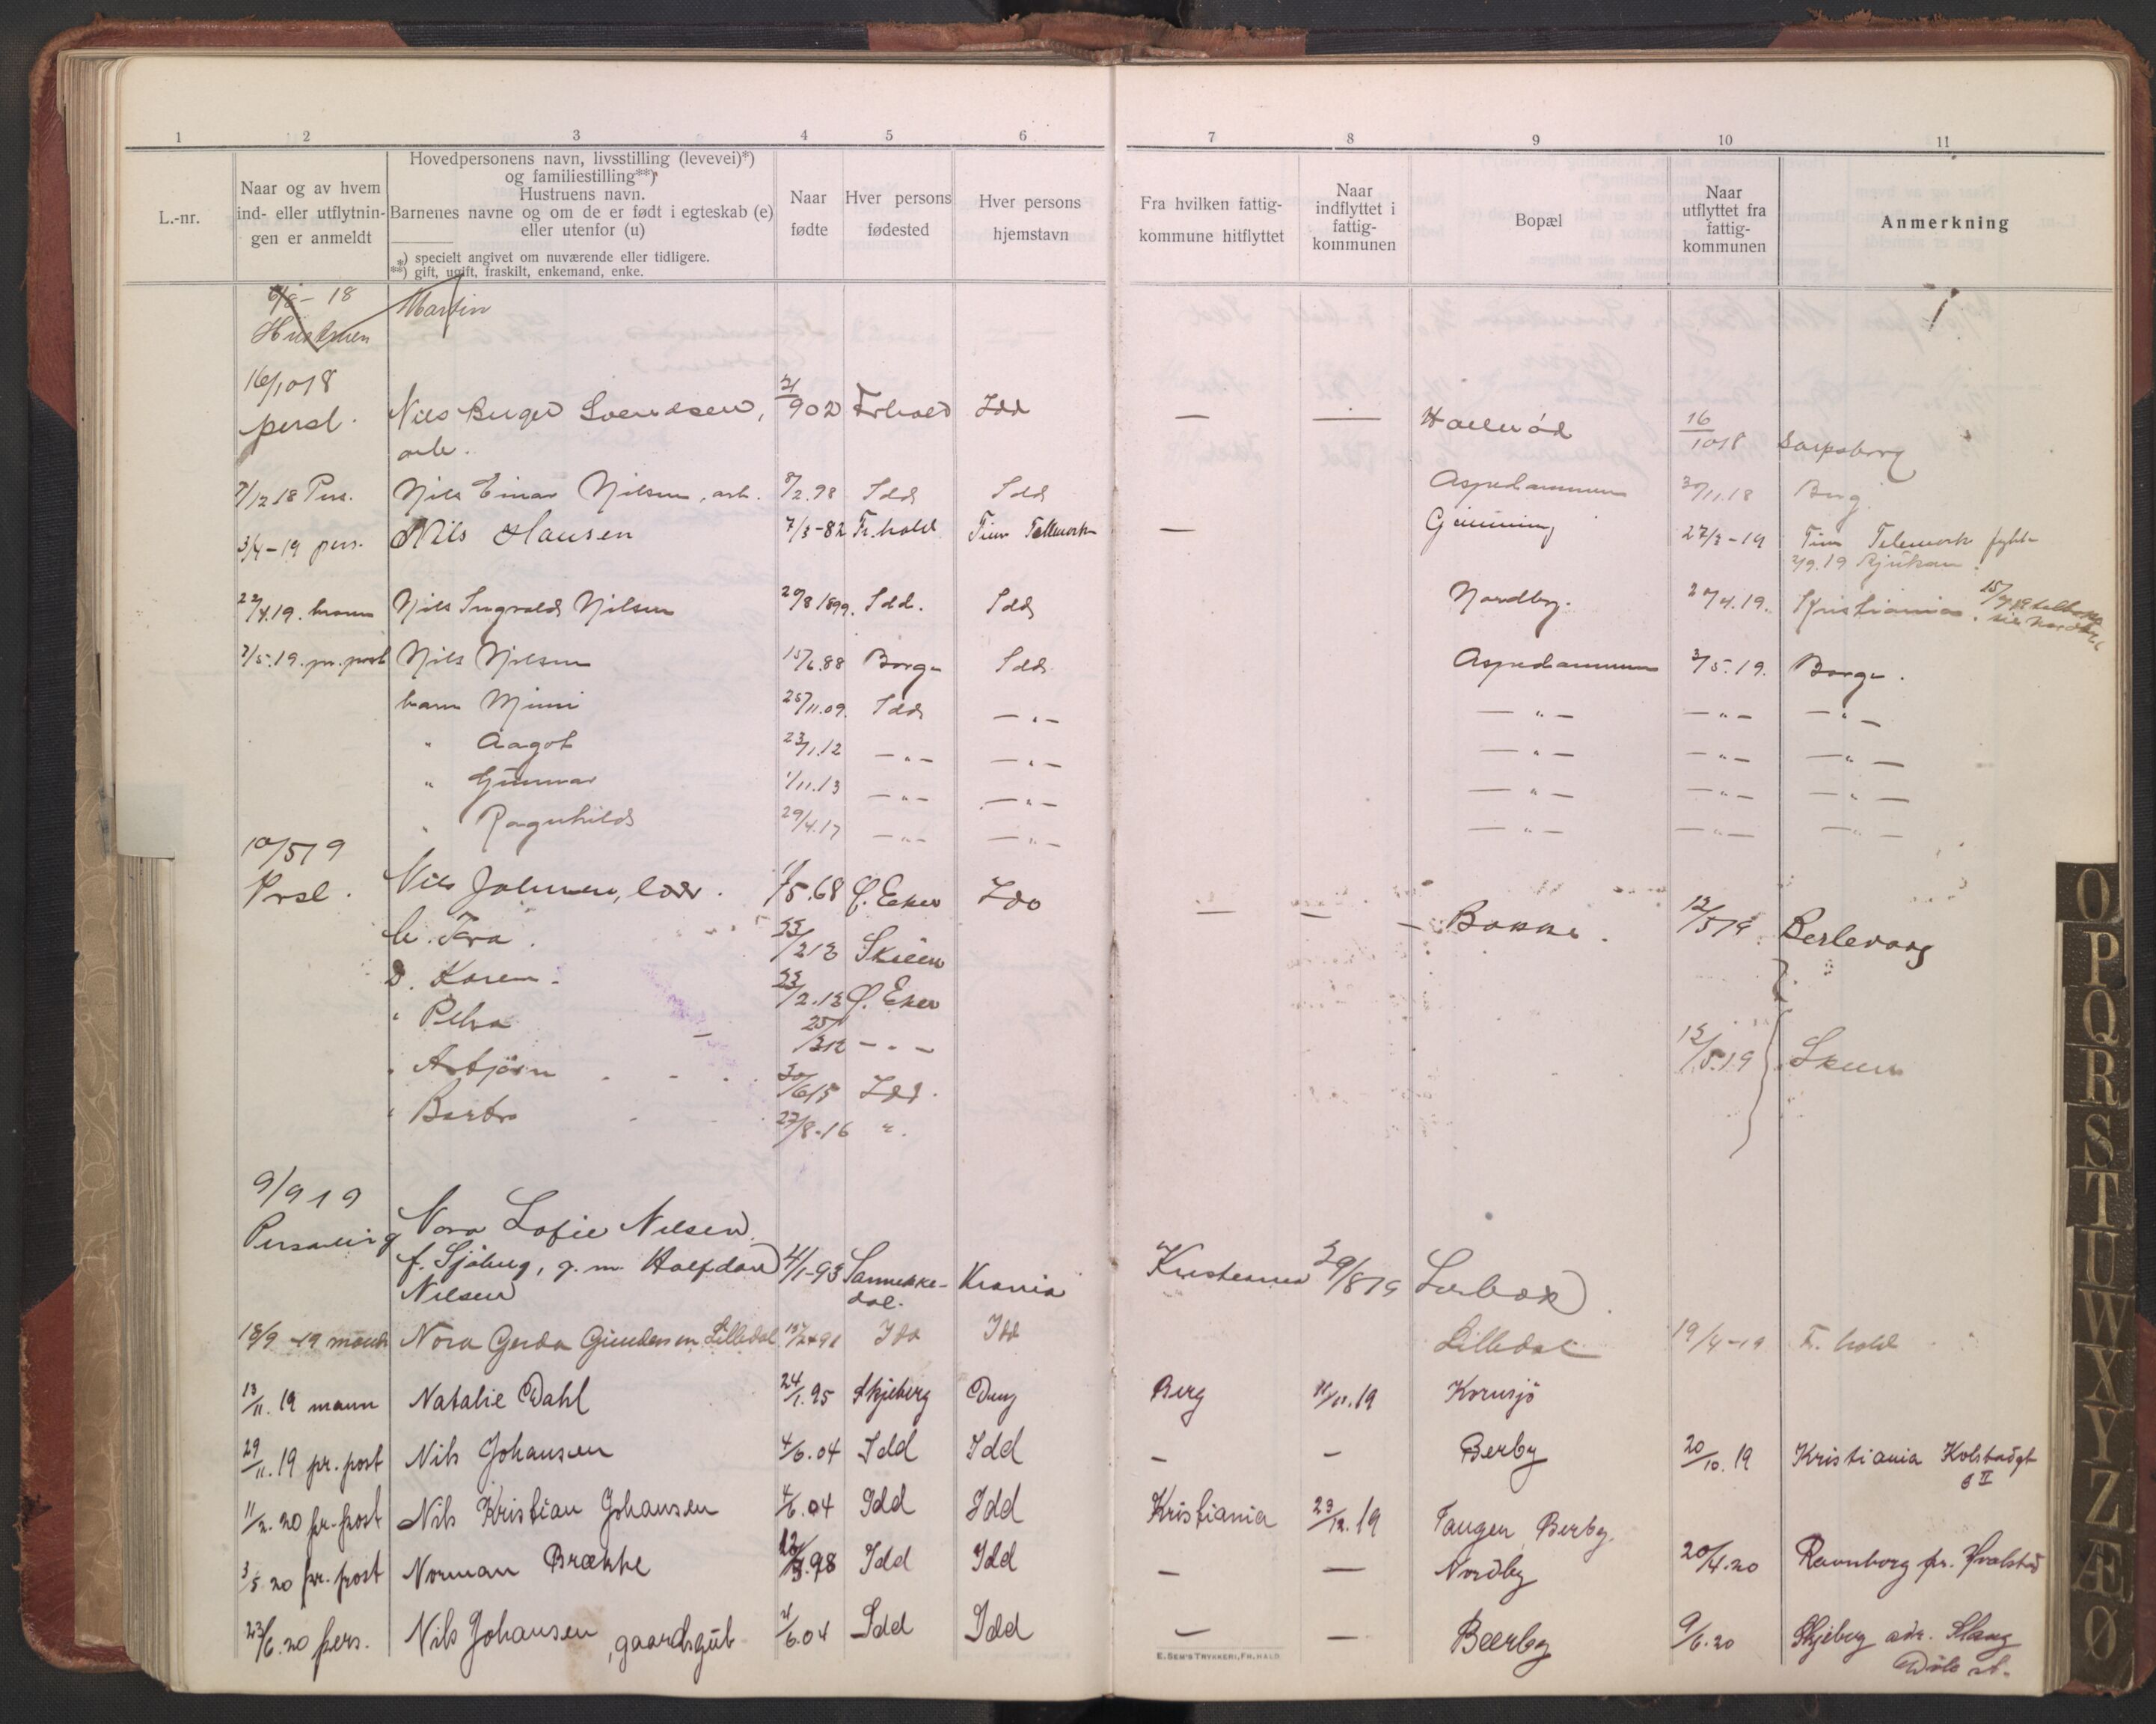 1 2 3 4 5 6 7 8 9 10 11
L.-nr.
Naar og av hvem
ind- eller utflytnin-
gen er anmeldt
Hovedpersonens navn, livsstilling (levevei)*)
og familiestilling**)
Hustruens navn.
Barnenes navne og om de er født i egteskab (e)
eller utenfor (u)
*) specielt angivet om nuværende eller tidligere.
**) gift, ugift, fraskilt, enkemand, enke.
Naar
fødte
Hver persons
fødested
Hver persons
hjemstavn
Fra hvilken fattig-
kommune hitflyttet
Naar
indflyttet i
fattig-
kommunen
Bopæl
Naar
utflyttet fra
fattig-
kommunen
Anmerkning
6/8 - 18 Martin
Hustruen
16/10 18
persl. Nils Birger Svendsen, 902 Fr.hald Idd — — 16/10 18 Sarpsborg
arb.
7/12 18 Pers. Nils Einar Nilsen, arb. 8/2.98 Idd Idd Aspedammen 30/11.18 Berg
3/4-19 pers. Nils Hansen 7/3-82 Fr.hald Tinn Telemark — Grimming 27/3-19 Tinn Telemark fylke
2/9.19 Rjukan.
22/4.19. Nils Ingvald Nilsen 29/8 1899. Idd. Idd Nordby. 27/4.19. Kristiania.
7/5.19. pr. post Nils Nilsen 15/6.88 Borge Idd Aspedammen 3/5.19. Borge.
barn Mimi 25/11.09. Idd —„— —„— —„— —„—
„ Aagot 23/1.12 —„— —„— —„— —„— —„—
„ Gunnar 1/11.13 —„— —„— —„— —„— —„—
„ Ragnhild 29/4.17 —„— —„— —„— —„— —„—
10/5 19
Prsl. Nils Johnsen, lær. /5.68 Ø. Eker Idd — — — Bakke. 12/5 19. Berlevaag
h. Tora. /2 13 Skien
D. Karen. /2.13 Ø. Eker
„ Petra 25/3 12 — „ —
„ Asbjørn 30/6 15 Idd. 12/5.19 Skien
„ Barbro 27/8-16 „.
9/9 19
Personlig Nora Sofie Nilsen
f. Sjöberg, g. m. Halfdan 4/1-93 Sannikke- Krania Kristiania 29/8 19
Nilsen dal.
18/9 -19 Nora Gerda Gundersen Lilledal Idd Idd Lilledal 19/4-19 Fr. hald
13/11. 19 mann Natalie Dahl 24/1.95 Skjeberg Berg 11/11.19 Kornsjö
29/11. 19 pr. post Nils Johansen 4/6.04 Idd Idd — — Berby 20/10.19 Kristiania Kolstadgt
6 II
11/2. 20 pr. post Nils Kristian Johansen 4/6.04 Idd Idd Kristiania 23/12.19 Tangen Berby.
3/5 20 pr. post Norman Brække 12/3.98 Idd Idd — — Nordby 20/4.20 Ravnborg pr. Hvalstad
23/6.20 pers. Nils Johansen, gaardsgut 4/6.04 Idd Idd — — Bærby 9/6.20 Skjeberg adr.
st.
E. SEM'S TRYKKERI, FR.HALD
O
P
Q
R
S
T
U
W
X
Y
Z
Æ
Ø